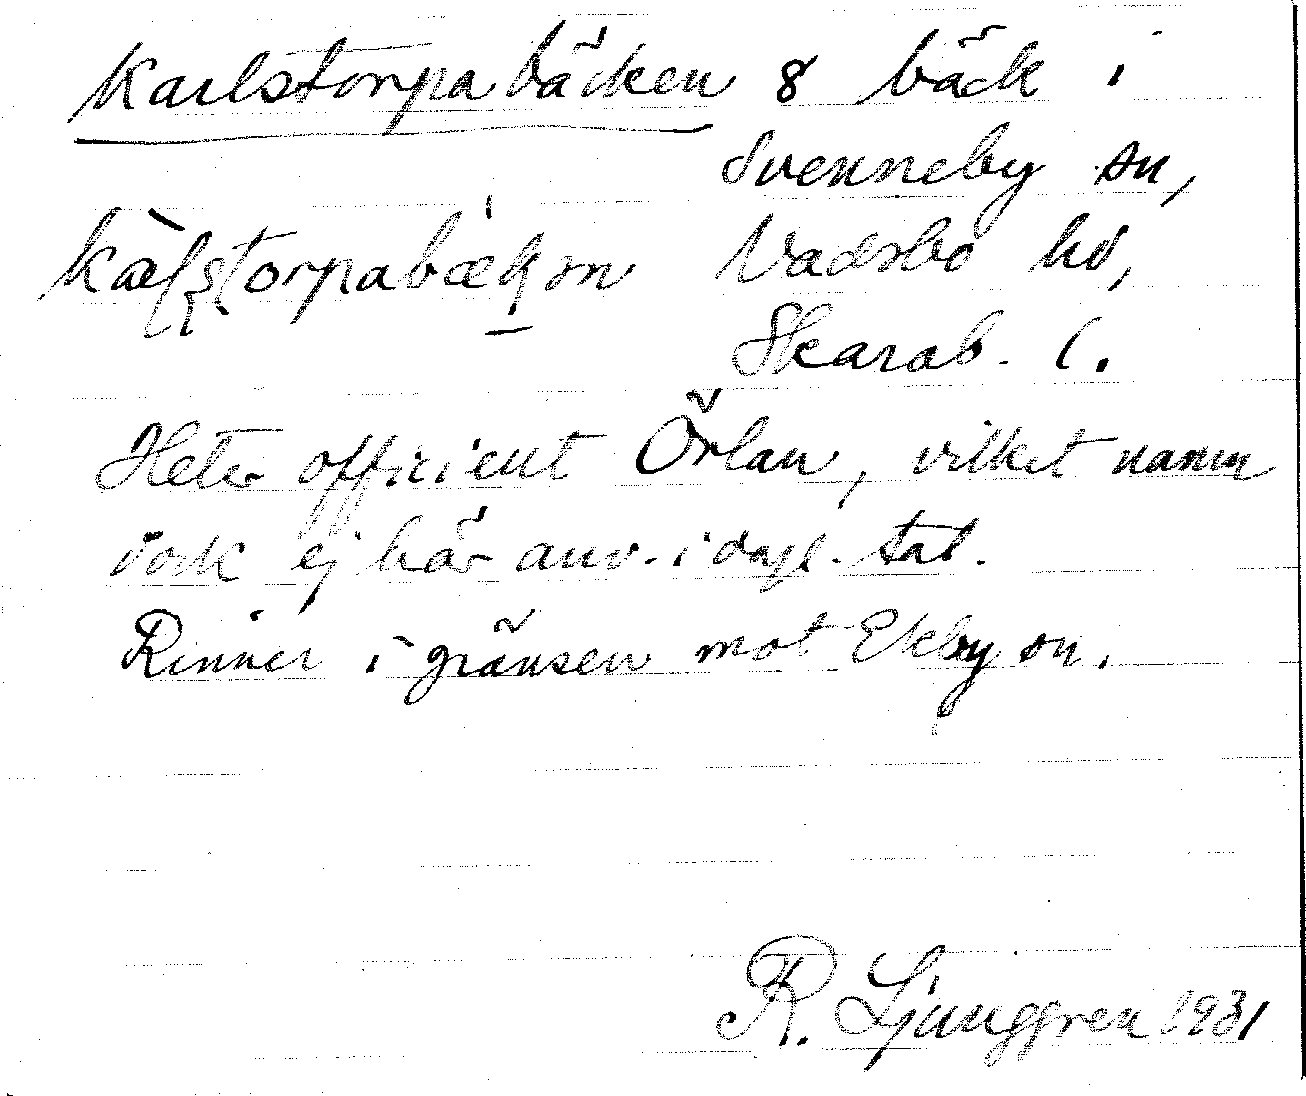 Karlstorpabäcken 8 bäck i
Svenneby sn,
Vadsbo hd,
Skarab. l.
Heter officient Örlan, vilket namn
dock ej här anv. i dagl. tal.
Rinner i gränsen mot Ekby sn.
R. Ljunggren 1931